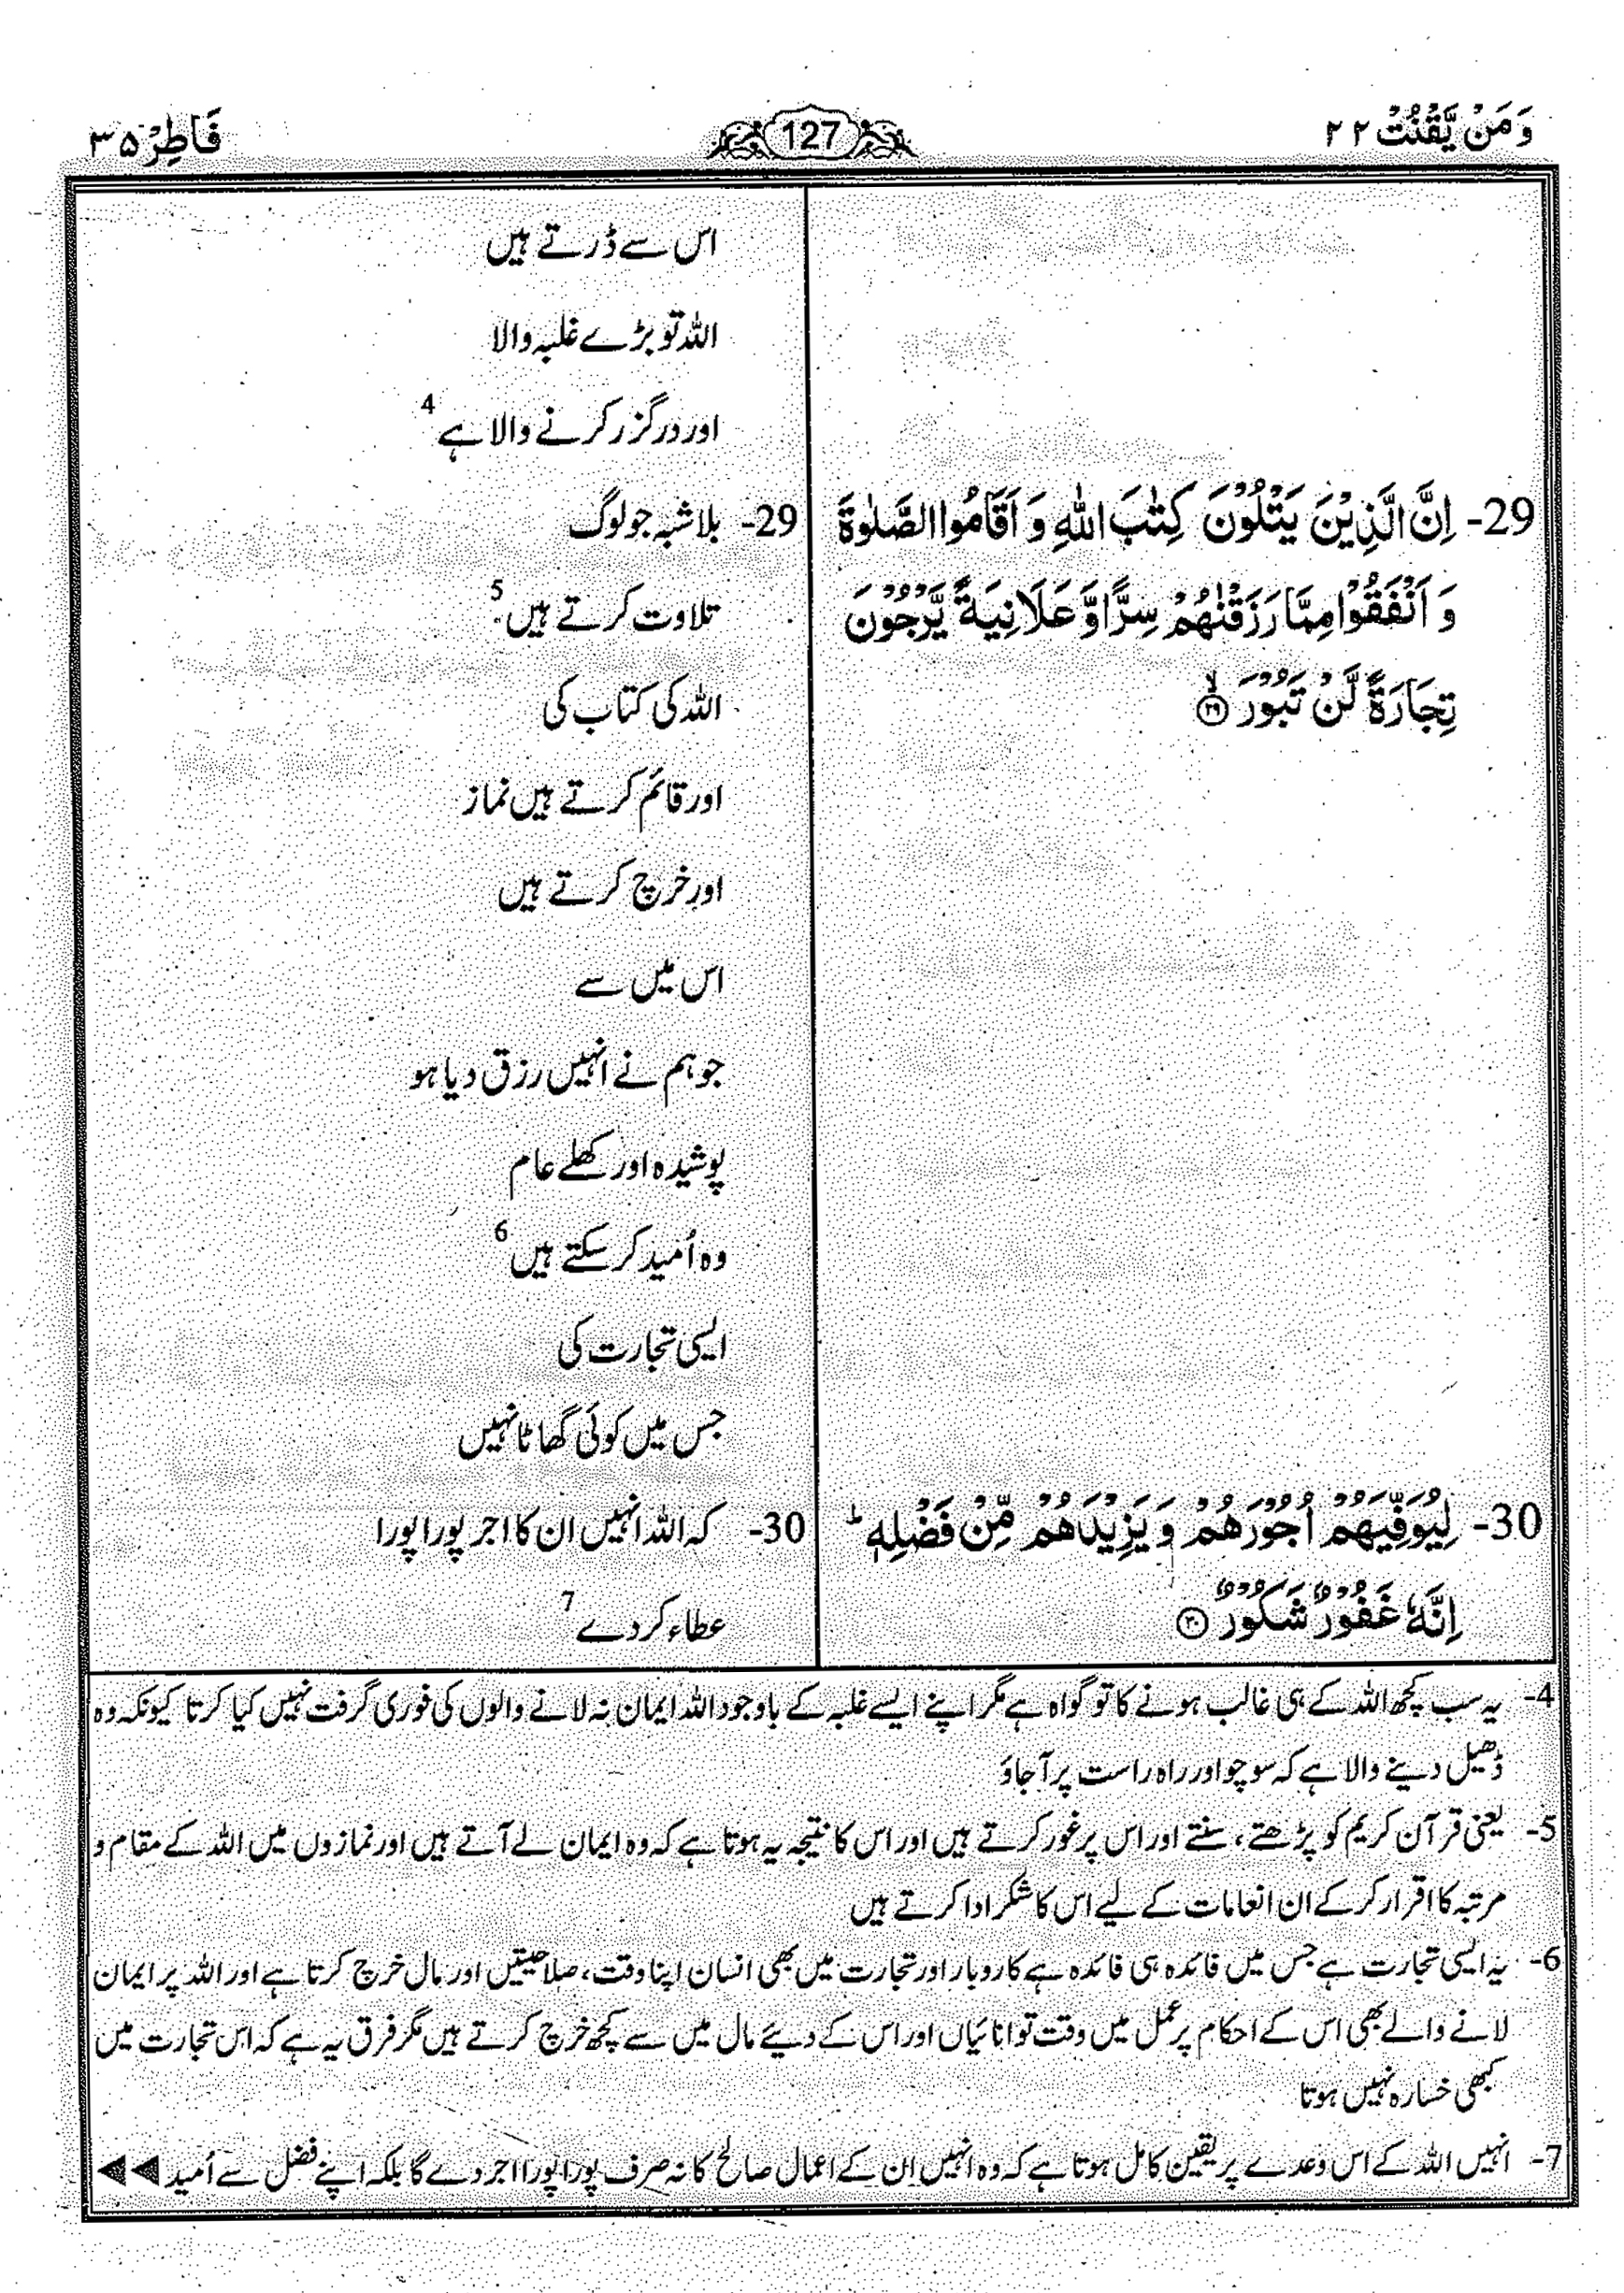 وَ مَنْ يَّقْنُتْ ٢٢
127
فَاطِرْ ٣٥
اس سے ڈرتے ہیں
اللہ تو بڑے غلبہ والا
اور درگزر کرنے والا ہے 4
29- اِنَّ الَّذِيْنَ يَتْلُوْنَ كِتٰبَ اللّٰهِ وَ اَقَامُوا الصَّلٰوةَ
وَ اَنْفَقُوْا مِمَّا رَزَقْنٰهُمْ سِرًّا وَّ عَلَانِيَةً يَّرْجُوْنَ
تِجَارَةً لَّنْ تَبُوْرَ ۙ ﴿٢٩﴾
29- بلاشبہ جو لوگ
تلاوت کرتے ہیں 5
اللہ کی کتاب کی
اور قائم کرتے ہیں نماز
اور خرچ کرتے ہیں
اس میں سے
جو ہم نے انہیں رزق دیا ہو
پوشیدہ اور کھلے عام
وہ اُمید کر سکتے ہیں 6
ایسی تجارت کی
جس میں کوئی گھاٹا نہیں
30- لِيُوَفِّيَهُمْ اُجُوْرَهُمْ وَ يَزِيْدَهُمْ مِّنْ فَضْلِهٖ ؕ
اِنَّهٗ غَفُوْرٌ شَكُوْرٌ ﴿٣٠﴾
30- کہ اللہ انہیں ان کا اجر پورا پورا
عطاء کر دے 7
4- یہ سب کچھ اللہ کے ہی غالب ہونے کا تو گواہ ہے مگر اپنے ایسے غلبہ کے باوجود اللہ ایمان نہ لانے والوں کی فوری گرفت نہیں کیا کرتا کیونکہ وہ
ڈھیل دینے والا ہے کہ سوچو اور راہ راست پر آجاؤ
5- یعنی قرآن کریم کو پڑھتے، سنتے اور اس پر غور کرتے ہیں اور اس کا نتیجہ یہ ہوتا ہے کہ وہ ایمان لے آتے ہیں اور نمازوں میں اللہ کے مقام و
مرتبہ کا اقرار کر کے ان انعامات کے لیے اس کا شکر ادا کرتے ہیں
6- یہ ایسی تجارت ہے جس میں فائدہ ہی فائدہ ہے کاروبار اور تجارت میں بھی انسان اپنا وقت، صلاحیتیں اور مال خرچ کرتا ہے اور اللہ پر ایمان
لانے والے بھی اس کے احکام پر عمل میں وقت توانائیاں اور اس کے دیئے مال میں سے کچھ خرچ کرتے ہیں مگر فرق یہ ہے کہ اس تجارت میں
کبھی خسارہ نہیں ہوتا
7- انہیں اللہ کے اس وعدے پر یقین کامل ہوتا ہے کہ وہ انہیں ان کے اعمال صالح کا نہ صرف پورا پورا اجر دے گا بلکہ اپنے فضل سے اُمید ◄◄